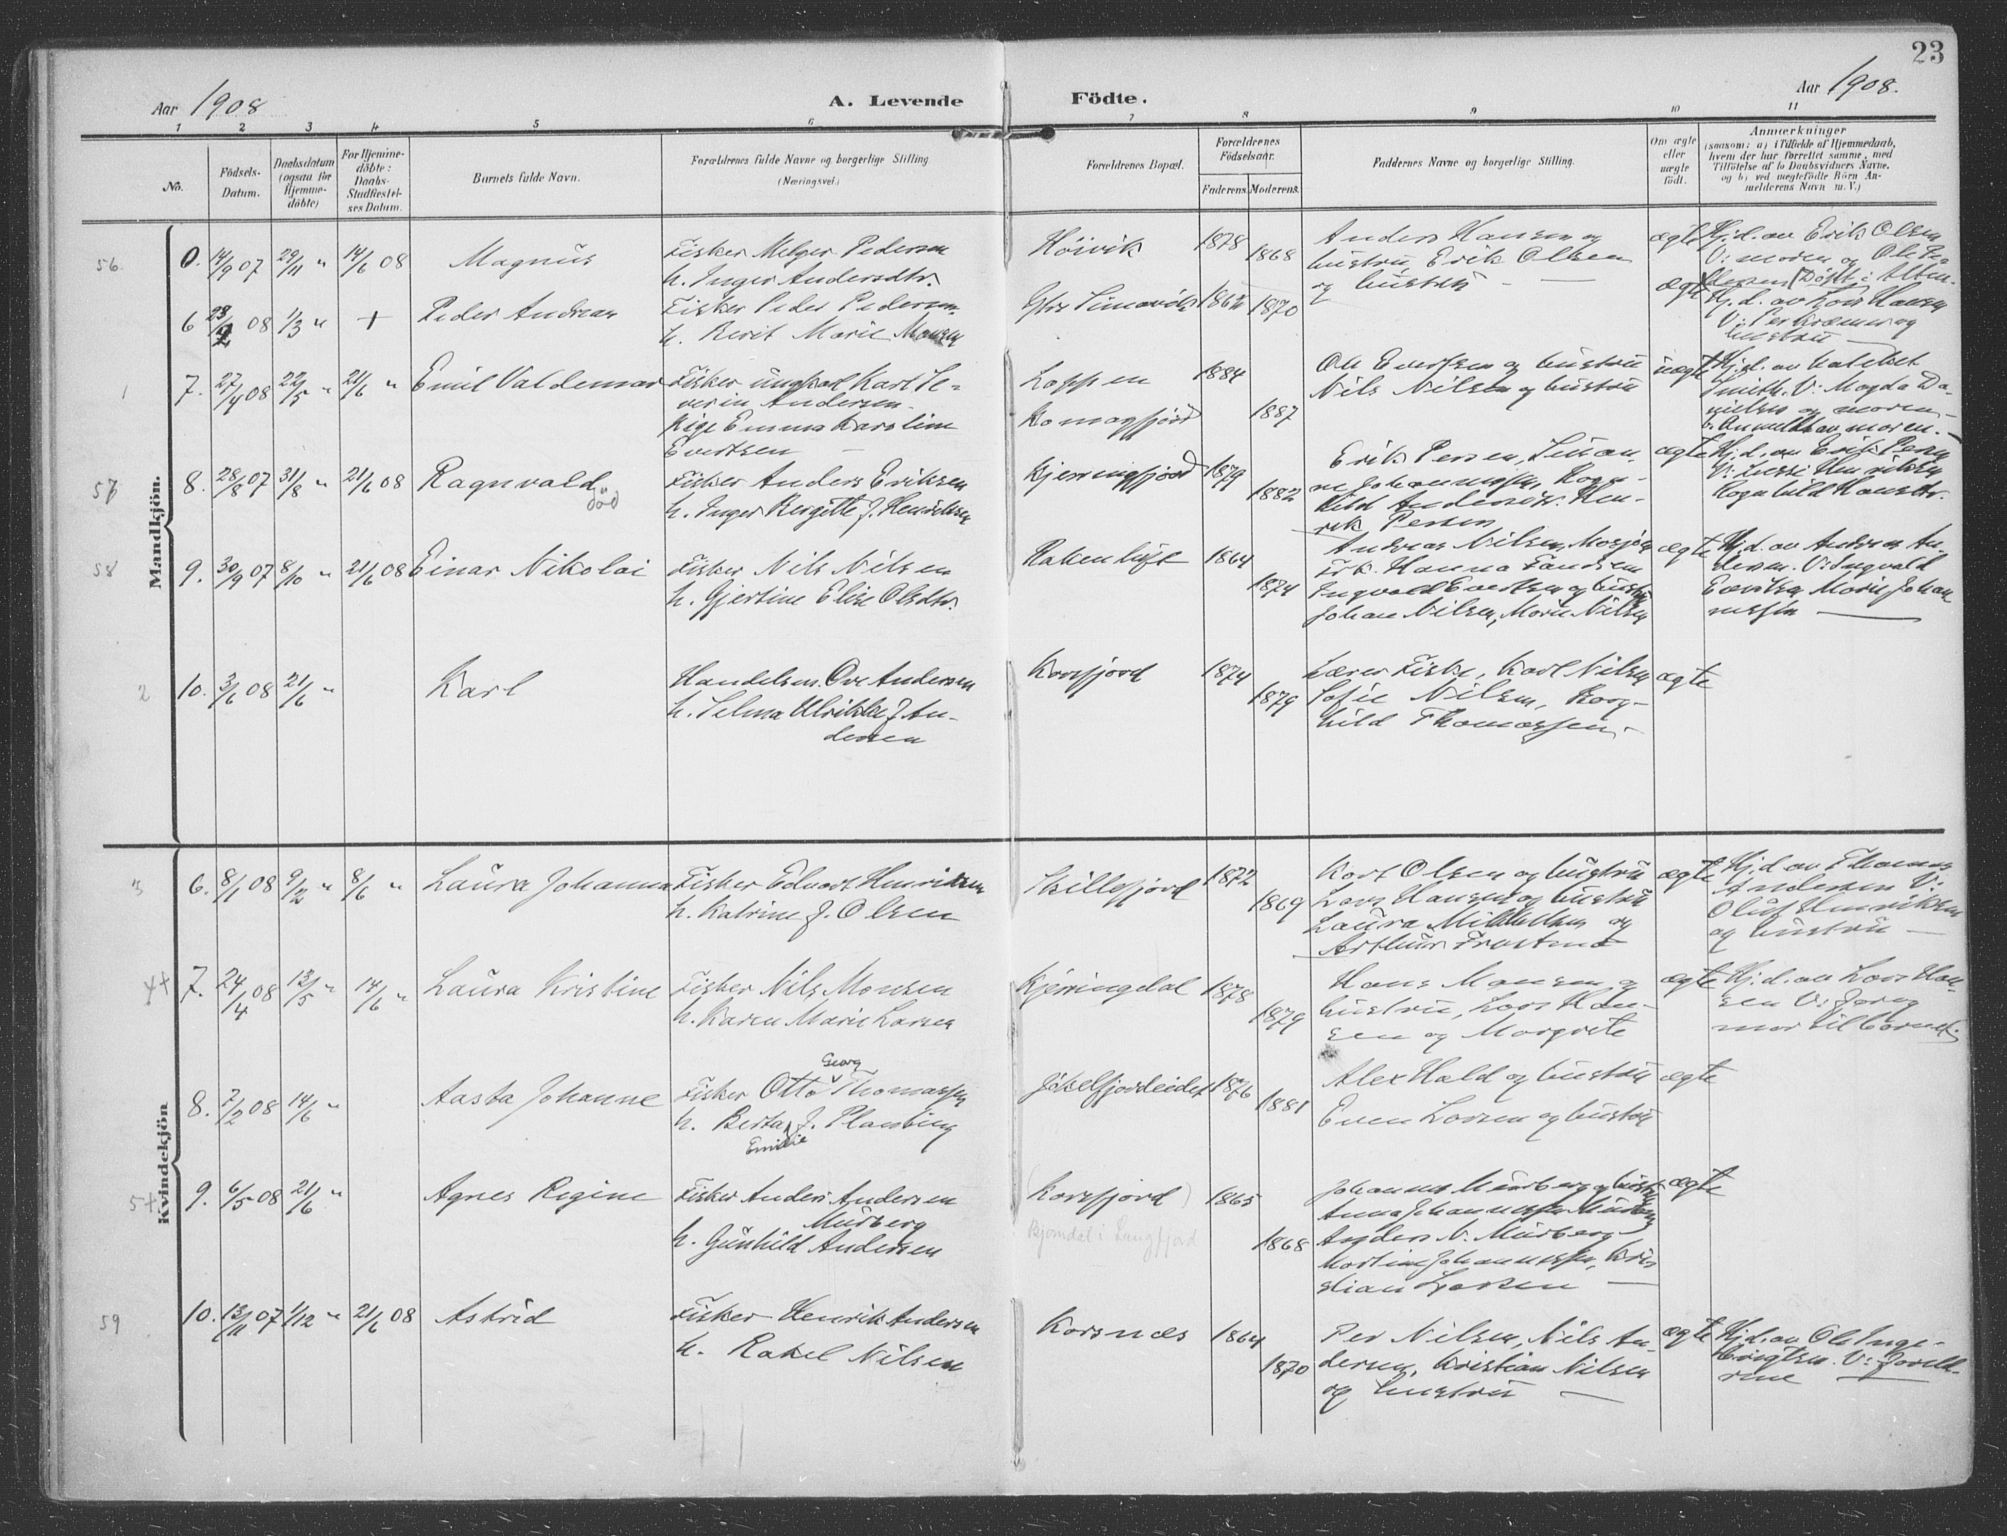 23
Aar 1908
A. Levende Födte.
Aar 1908.
1 2 3 4 5 6 7 8 9 10 11
No.
Födsels-Datum.
Daabsdatum (ogsaa for Hjemme-döbte)
For Hjemme-döbte: Daabs-Stadfæstel-ses Datum.
Barnets fulde Navn.
Forældrenes fulde Navne og borgerlige Stilling
(Næringsvei.)
Forældrenes Bopæl.
Forældrenes Födselsaar.
Faderens. Moderens.
Faddernes Navne og borgerlige Stilling.
Om ægte eller uægte födt.
Anmærkninger
(saasom: a) i Tilfælde af Hjemmedaab,
hvem der har forrettet samme, med
Tilföielse af to Daabsvidners Navne.
og b) ved uægtefödte Börn An-
melderens Navn m. V.)
Mandkjön.
56. 0. 14/9 07 29/11 " 14/6 08 Magnus
Fisker Melger Pedersen
h. Inger Andersdtr.
Höivik 1878 1868
Anders Hansen og
hustru Erik Olsen
og hustru —
ægte
Hj.d. av Erik Olsen
V: moren og Ole Pe-
dersen
6 23/2 08 1/3 " + Peder Andreas
Fisker Peder Pedersen
h. Berit Marie Monsen
1862 1870
ægte
Hj.d. av Lars Hansen
V: Per Kræmer og
hustru —
1 7. 27/4 08 22/5 " 21/6 " Emil Valdemar
Fisker ungkarl Karl Se-
verin Andersen
Pige Emma Karoline
Evertsen —
Loppen
Komagfjord
1884 1887
Ole Evertsen og hustru
Nils Nilsen og hustru
uægte
Smith. V: Magda Da-
nielsen og moren —
b. Anmeldt av moren. —
57 8. 28/8 07 31/8 " 21/6 08 Ragnvald
död
Fisker Anders Eriksen
h. Inger Birgitte f. Henriksen
Kjerringfjord 1879 1882
Erik Persen, Susan-
ne Johannessen, Ragn-
hild Andersdtr. Hen-
rik Persen
ægte
Hj.d. av Erik Persen
V: Lussi Henriksen
Ragnhild Hansdtr.
58 9. 30/9 07 8/10 " 21/6 08 Einar Nikolai
Fisker Nils Nilsen
h. Gjertine Elise Olsdtr.
Rakenlüft 1864 1874
Andreas Nilsen, Mosjöen
Frk. Hanna Fandrem
Ingvald Evertsen og hustru
Johan Nilsen, Marie Nilsen
ægte
Hj.d. av Andreas An-
dersen. V: Ingvald
Evertsen Marie Johan
nessen —
2 10. 3/6 08 21/6 " Karl
Handelsm. Ove Andersen
h. Selma Ulrikke f. An-
dersen
Korsfjord 1874 1879
Lærer Fiske, Karl Nilsen
Sofie Nilsen, Borg-
hild Thomassen. —
ægte
Kvindekjön
3 6. 8/1 08 9/2 " 8/6 " Laura Johanna
Fisker Edvart Henriksen
h. Katrine f. Olsen
Skillefjord 1872 1869
Kort Olsen og hustru
Lars Hansen og hustru
Laura Mikkelsen og
Arthur
ægte
Hj.d. av Thomas
Andersen V:
Oluf Henriksen
og hustru —
4+ 7. 24/4 08 13/5 " 14/6 " Laura Kristine
Fisker Nils Monsen
h. Karen Marie Larsen
Kjerringdal 1878 1879
Hans Monsen og
hustru, Lars Han-
sen og Margrete
ægte
Hj.d. av Lars Han-
sen V: Far og
mor til barnet.
8. 7/2 08 14/6 " Aasta Johanne
Georg
Fisker Otto Thomassen
h. Berta f. Planting
Emilie
Jökelfjordeidet 1876 1881
Alex Hald og hustru
Even Larsen og hustru
ægte
5+ 9. 6/5 08 21/6 " Agnes Regine
Fisker Anders Andersen
Murberg
h. Gunhild Andersen
(Korsfjord)
Bjørndal i Langfjord
1865 1868
Johannes Murberg og hustru
Anna Johannessen Murberg
Anders N. Murberg
Martine Johannessen, Kris
stian Larsen —
ægte
59 10. 13/11 07 1/12 " 21/6 08 Astrid
Fisker Henrik Andersen
h. Rakel Nilsen
Korsnæs 1864 1870
Per Nilsen, Nils An-
dersen, Kristian Nilsen
og hustru —
ægte
Hj.d. av Ole Inge-
brigtsen. V: Foreld-
rene